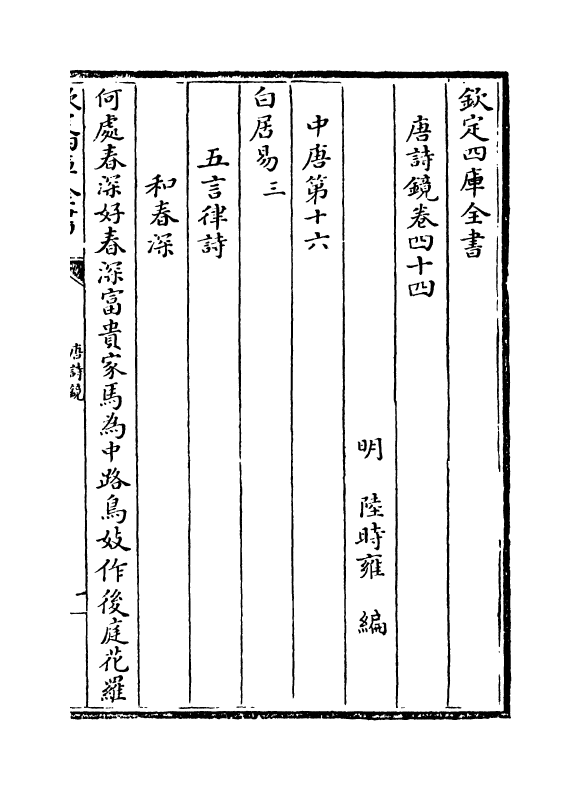 欽定四庫全書
唐詩鏡卷四十四
明　陸時雍　編
中唐第十六
白居易三
五言律詩
和春深
何處春深好春深富貴家馬為中路鳥妓作後庭花羅
唐詩鏡